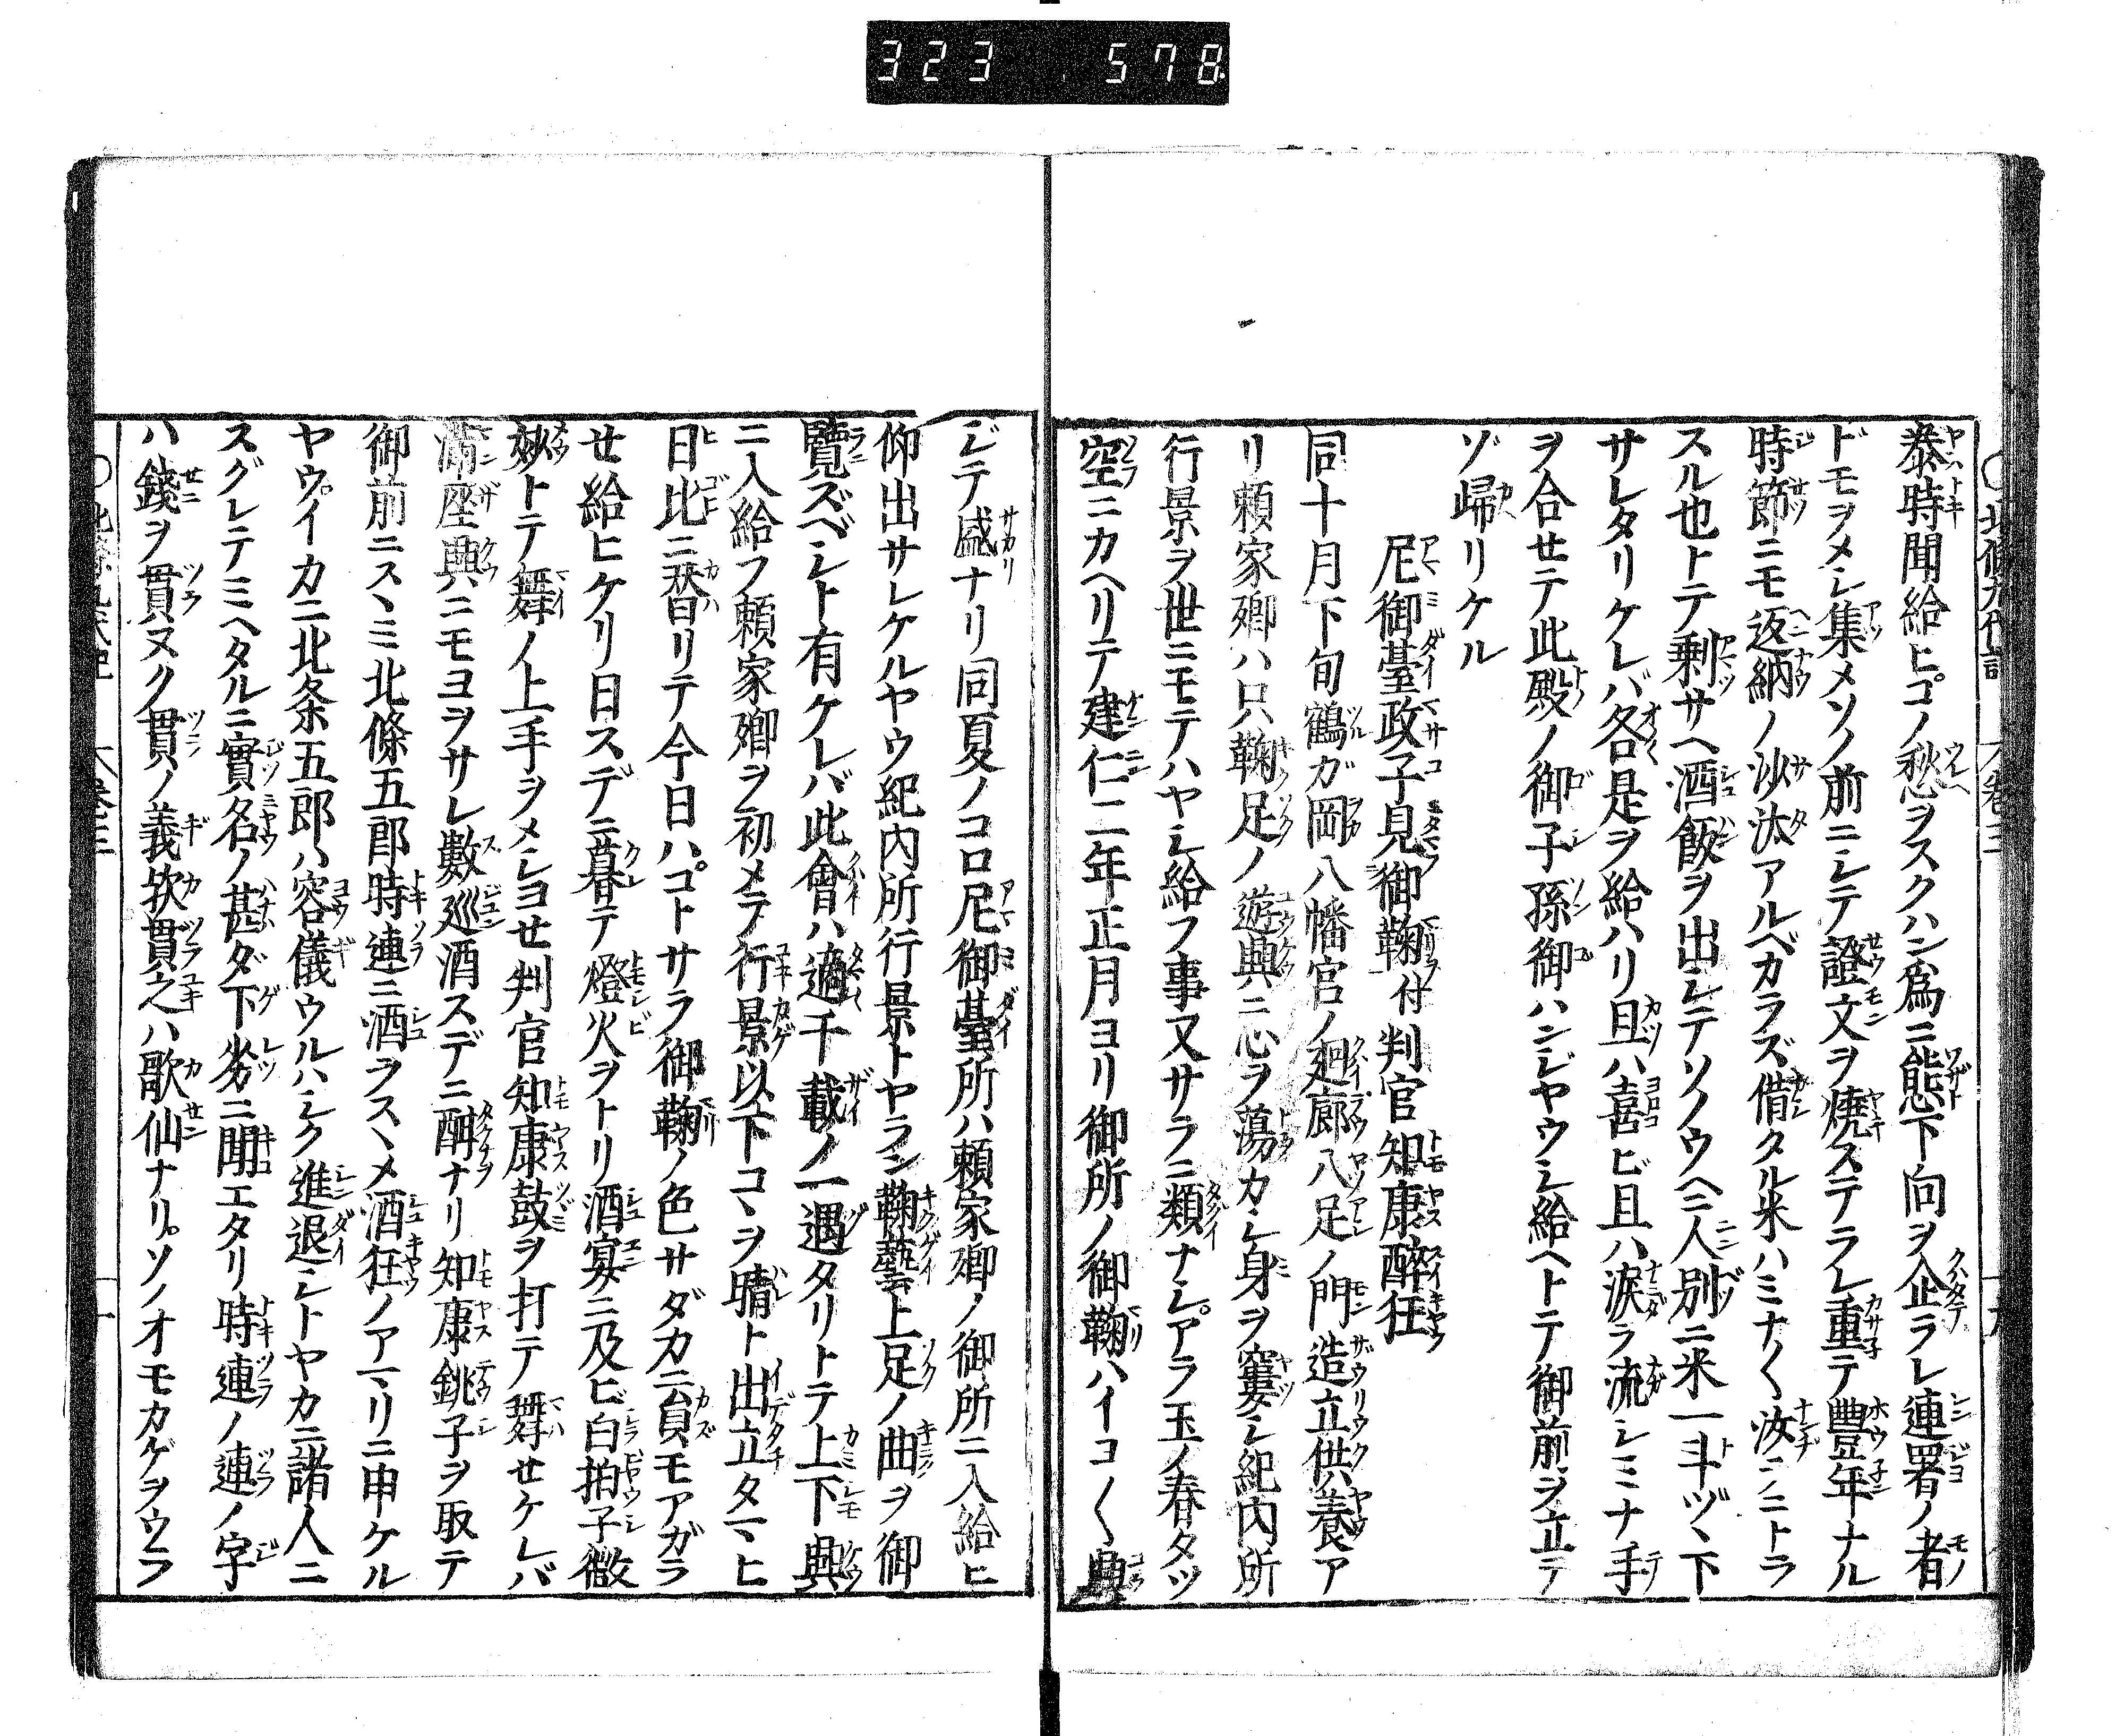 323 578
泰時聞給ヒコノ愁ヲスクハン爲ニ態下向ヲ企ラレ連署ノ者
ドモヲメシ集メソノ前ニシテ證文ヲ燒ステラレ重テ豐年ナル
時節ニモ返納ノ沙汰アルベカラズ借タル米ハミナ〱汝ラニトラ
スル也トテ剩サヘ酒飯ヲ出シテソノウヘニ人別ニ米一斗ヅヽ下
サレタリケレバ各是ヲ給ハリ且ハ喜ビ且ハ淚ヲ流シミナ手
ヲ合セテ此殿ノ御子孫御ハンジヤウシ給ヘトテ御前ヲ立テ
ゾ歸リケル
尼御臺政子見御鞠付判官知康醉狂
同十月下旬鶴ガ岡八幡宮ノ廻廊八足ノ門造立供養ア
リ賴家卿ハ只鞠足ノ遊興ニ心ヲ蕩カシ身ヲ窶シ紀内所
行景ヲ世ニモテハヤシ給フ事又サラニ類ナシアラ玉ノ春タツ
空ニカヘリテ建仁二年正月ヨリ御所ノ御鞠ハイコ〱興
ジテ盛ナリ同夏ノコロ尼御臺所ハ賴家卿ノ御所ニ入給ヒ
仰出サレケルヤウ紀内所行景トヤラン鞠藝上足ノ曲ヲ御
覽ズベシト有ケレバ此會ハ適千載ノ一遇タリトテ上下興
ニ入給フ賴家卿ヲ初メテ行景以下コヽヲ晴ト出立タマヒ
日比ニ替リテ今日ハコトサラ御鞠ノ色サダカニ員モアガラ
セ給ヒケリ日スデニ暮テ燈火ヲトリ酒宴ニ及ビ白拍子微
妙トテ舞ノ上手ヲメシヨセ判官知康鼓ヲ打テ舞セケレバ
滿座興ニモヨヲサレ數巡酒スデニ酣ナリ知康銚子ヲ取テ
御前ニスヽミ北條五郎時連ニ酒ヲスヽメ酒狂ノアマリニ申ケル
ヤウイカニ北条五郎ハ容儀ウルハシク進退シトヤカニ諸人ニ
スグレテミヘタルニ實名ノ甚ダ下劣ニ聞エタリ時連ノ連ノ字
ハ錢ヲ貫ヌク貫ノ義欤貫之ハ歌仙ナリソノオモカゲヲウラ